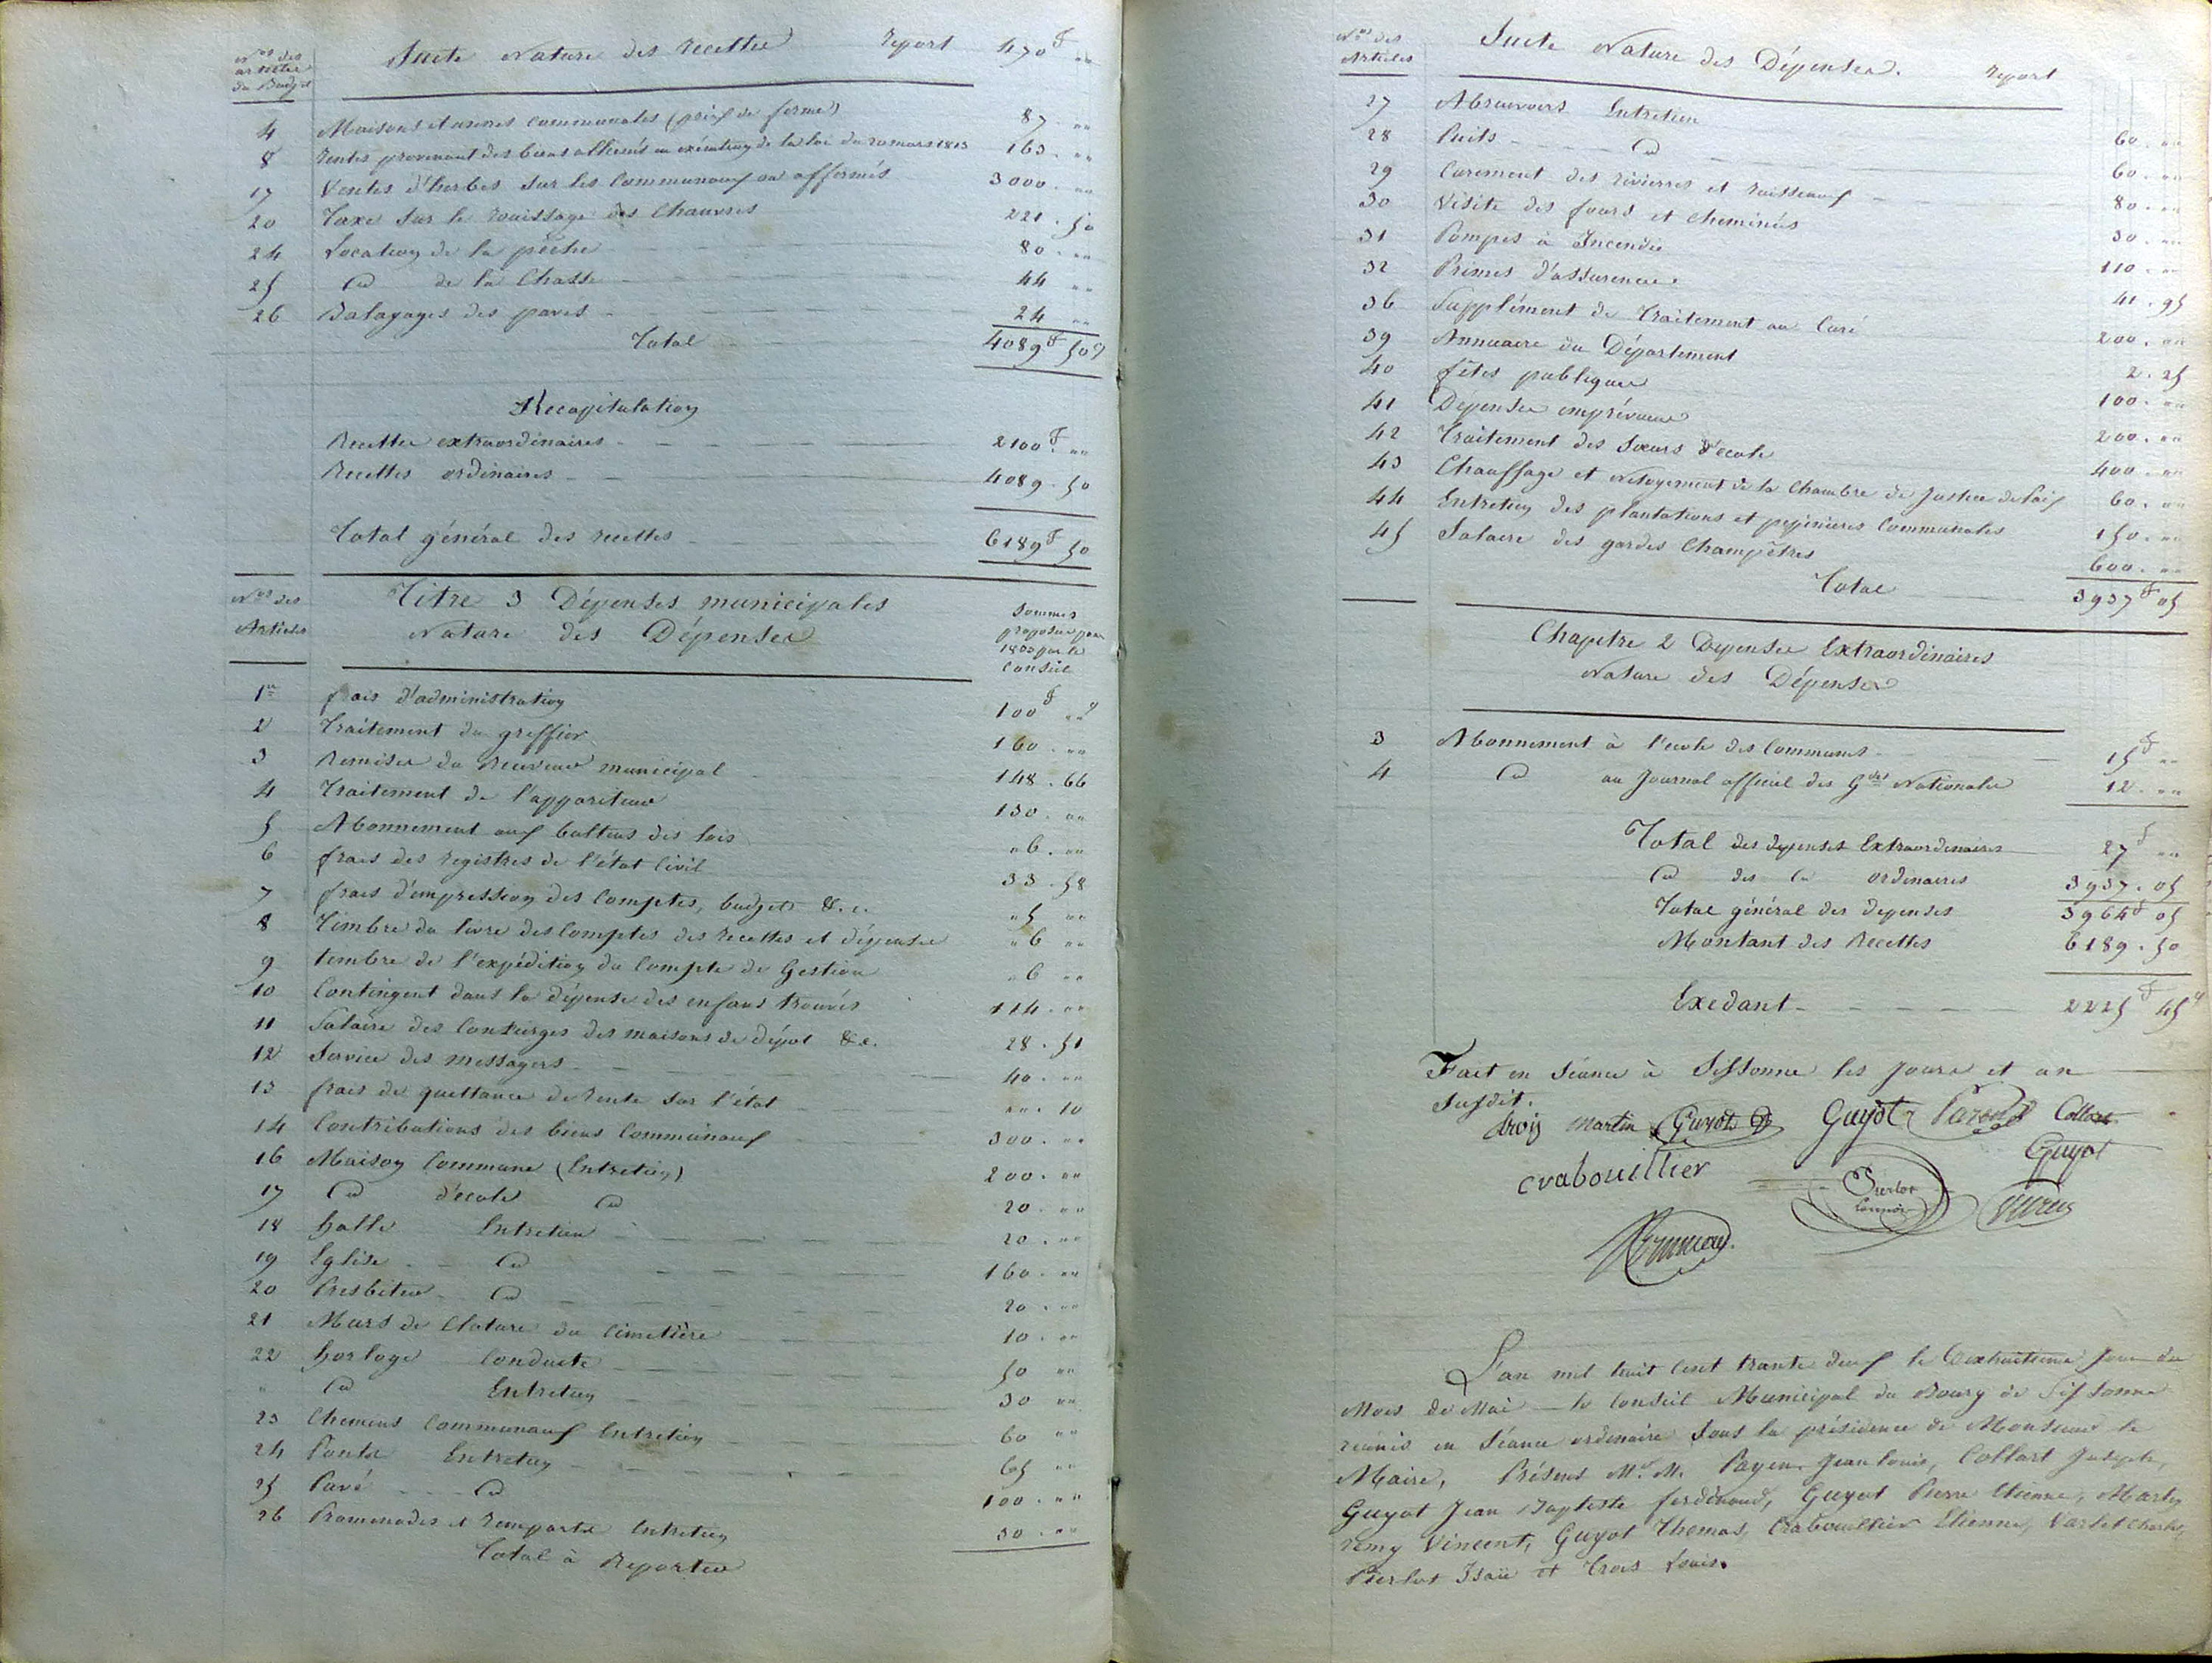 Nos des
articles
du Budget
Suite Nature des recettes Report 470 F ""
4 Maisons et usines communales (prix de ferme) 87 . ""
8 Rentes provenant des biens alliénés en exécution de la loi du 20 mars 1813 163 . ""
17 Ventes d'herbes sur les Communaux ou affermés 3000 . ""
20 Taxe sur le rouissage des Chanvres 221 . 50
24 Location de la pêche 80 . ""
25 Cd de la Chasse 44 ""
26 Balayages des pavés 24 ""
Total 4089 F 50 c
Recapitulation
Recettes extraordinaires 2100 F. ""
Recettes ordinaires 4089 . 50
Total général des recettes 6189 F 50
Nos des
Articles
Titre 3 Dépenses municipales
Nature des Dépenses
Sommes
proposées pour
par le
Conseil
1er frais d'administration 100 F "" c
2 Traitement du greffier 160 . ""
3 Remises du Receveur municipal 148 . 66
4 Traitement de l'appariteur 130 . ""
5 Abonnement aux bultins des lois " 6 . ""
6 frais des registres de l'état Civil 33 . 58
7 frais d'empression des Comptes, budgets &.c. " 5 ""
8 Timbre du livre des Comptes des recettes et dépenses " 6 ""
9 timbre de l'expédition du Compte de Gestion " 6 ""
10 Contingent dans la dépense des enfans trouvés 114 . ""
11 Salaire des Concierges des maisons de dépot &c. 28 . 51
12 Service des messagers 40 . ""
13 frais de quettance de rente sur l'état "" . 10
14 Contributions des biens Communaux 300 . ""
16 Maison Commune (Entretien) 200 . ""
17 Cd d'école Cd 20 . ""
18 halle Entretien 20 . ""
19 Eglise Cd 160 . ""
20 Presbiter Cd 20 . ""
21 Murs de Cloture du Cimetière 10 . ""
22 horloge Conduite 50 ""
" Cd Entretien 30 ""
23 Chemins Communaux Entretien 60 ""
24 Ponts Entretien 65 ""
25 Pavé Cd 100 . ""
26 Promenades et remparts Entretien 30 . ""
Total à Reporter
Nos des
Articles
Suite Nature des Dépenses. Report
27 Abreuvoirs Entretien 60 . ""
28 Puits Cd 60 . ""
29 Curement des rivierres et ruisseaux 80 . ""
30 Visite des fours et Cheminées 30 . ""
31 Pompes à Incendie 110 . ""
32 Primes d'assurence. 41 . 95
36 Supplément de Traitement au Curé 200 . ""
39 Annuaire du Département 2 . 25
40 fêtes publiques 100 . ""
41 Dépenses emprévues 200 . ""
42 Traitement des Sœurs d'école 400 . ""
43 Chauffage et netoyement de la Chambre de Justice de Paix 60 . ""
44 Entretien des plantations et pepinieres Communales 150 . ""
45 Salaire des gardes Champêtres 600 . ""
Total 3937 F 05
Chapitre 2 Depenses Extraordinaires
Nature des Dépenses
3 Abonnement à l'ecole des Communes 15 F ""
4 Cd au Journal officiel des Gdes Nationales 12 . ""
Total des depenses Extraordinaires 27 F ""
Cd des Cd ordinaires 3937 . 05
Total général des depenses 3964 F 05
Montant des Recettes 6189 . 50
Exedant 2225 F 45 c
Fait en séance à Sissonne les jours et an
susdit.
trois martin Guyot Guyot Payen Collart
Guyot
crabouillier Pierlot
L'an mil huit Cent trante deux le dixhuitieme jour du
Mois de Mai le Conseil Municipal du Bourg de Sissonne
réunis en séance ordinaire sous la présidence de Monsieur le
Maire, Présens Mrs M. Payen Jean Louis, Collart Joseph,
Guyot Jean Baptiste ferdinand, Guyot Pierre Etienne, Martin
remy Vincent, Guyot Thomas, Crabouillier Etienne, Varlet Charles,
Pierlot Isaïe et Trois Louis.